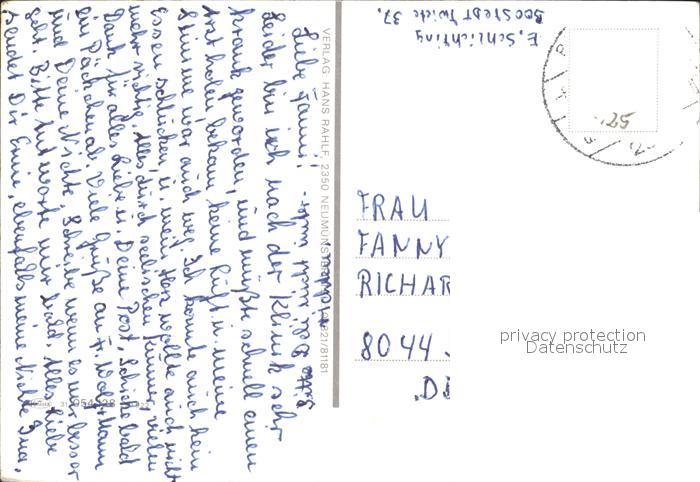 Liebe Fanni!
Leider bin ich nach der Klinik sehr
krank geworden, und mußte schnell einen
Arzt holen bekam keine Luft u. meine
Stimme war auch weg. Ich konnte auch kein
Essen schlucken, u. mein Herz wollte auch nicht
mehr richtig. Alles durch seelischen Kummer, vielen
Dank für alles Liebe u. Deine Post, schicke bald
ein Päckchen ab. Viele Grüße an F. Wolf, Mann
und Deine Nichte, schreibe wenn es mir besser
geht. Bitte Antworte mir bald. Alles Liebe
sendet Dir Erna, ebenfalls meine Nichte Ina.
Bitte Dir
VERLAG: HANS RAHLF, 2350 NEUMÜNSTER 04321/81181
E. Schlichting
Boostedt Twiete 37.
FRAU
FANNY
RICHAR
8044
privacy protection
Datenschutz